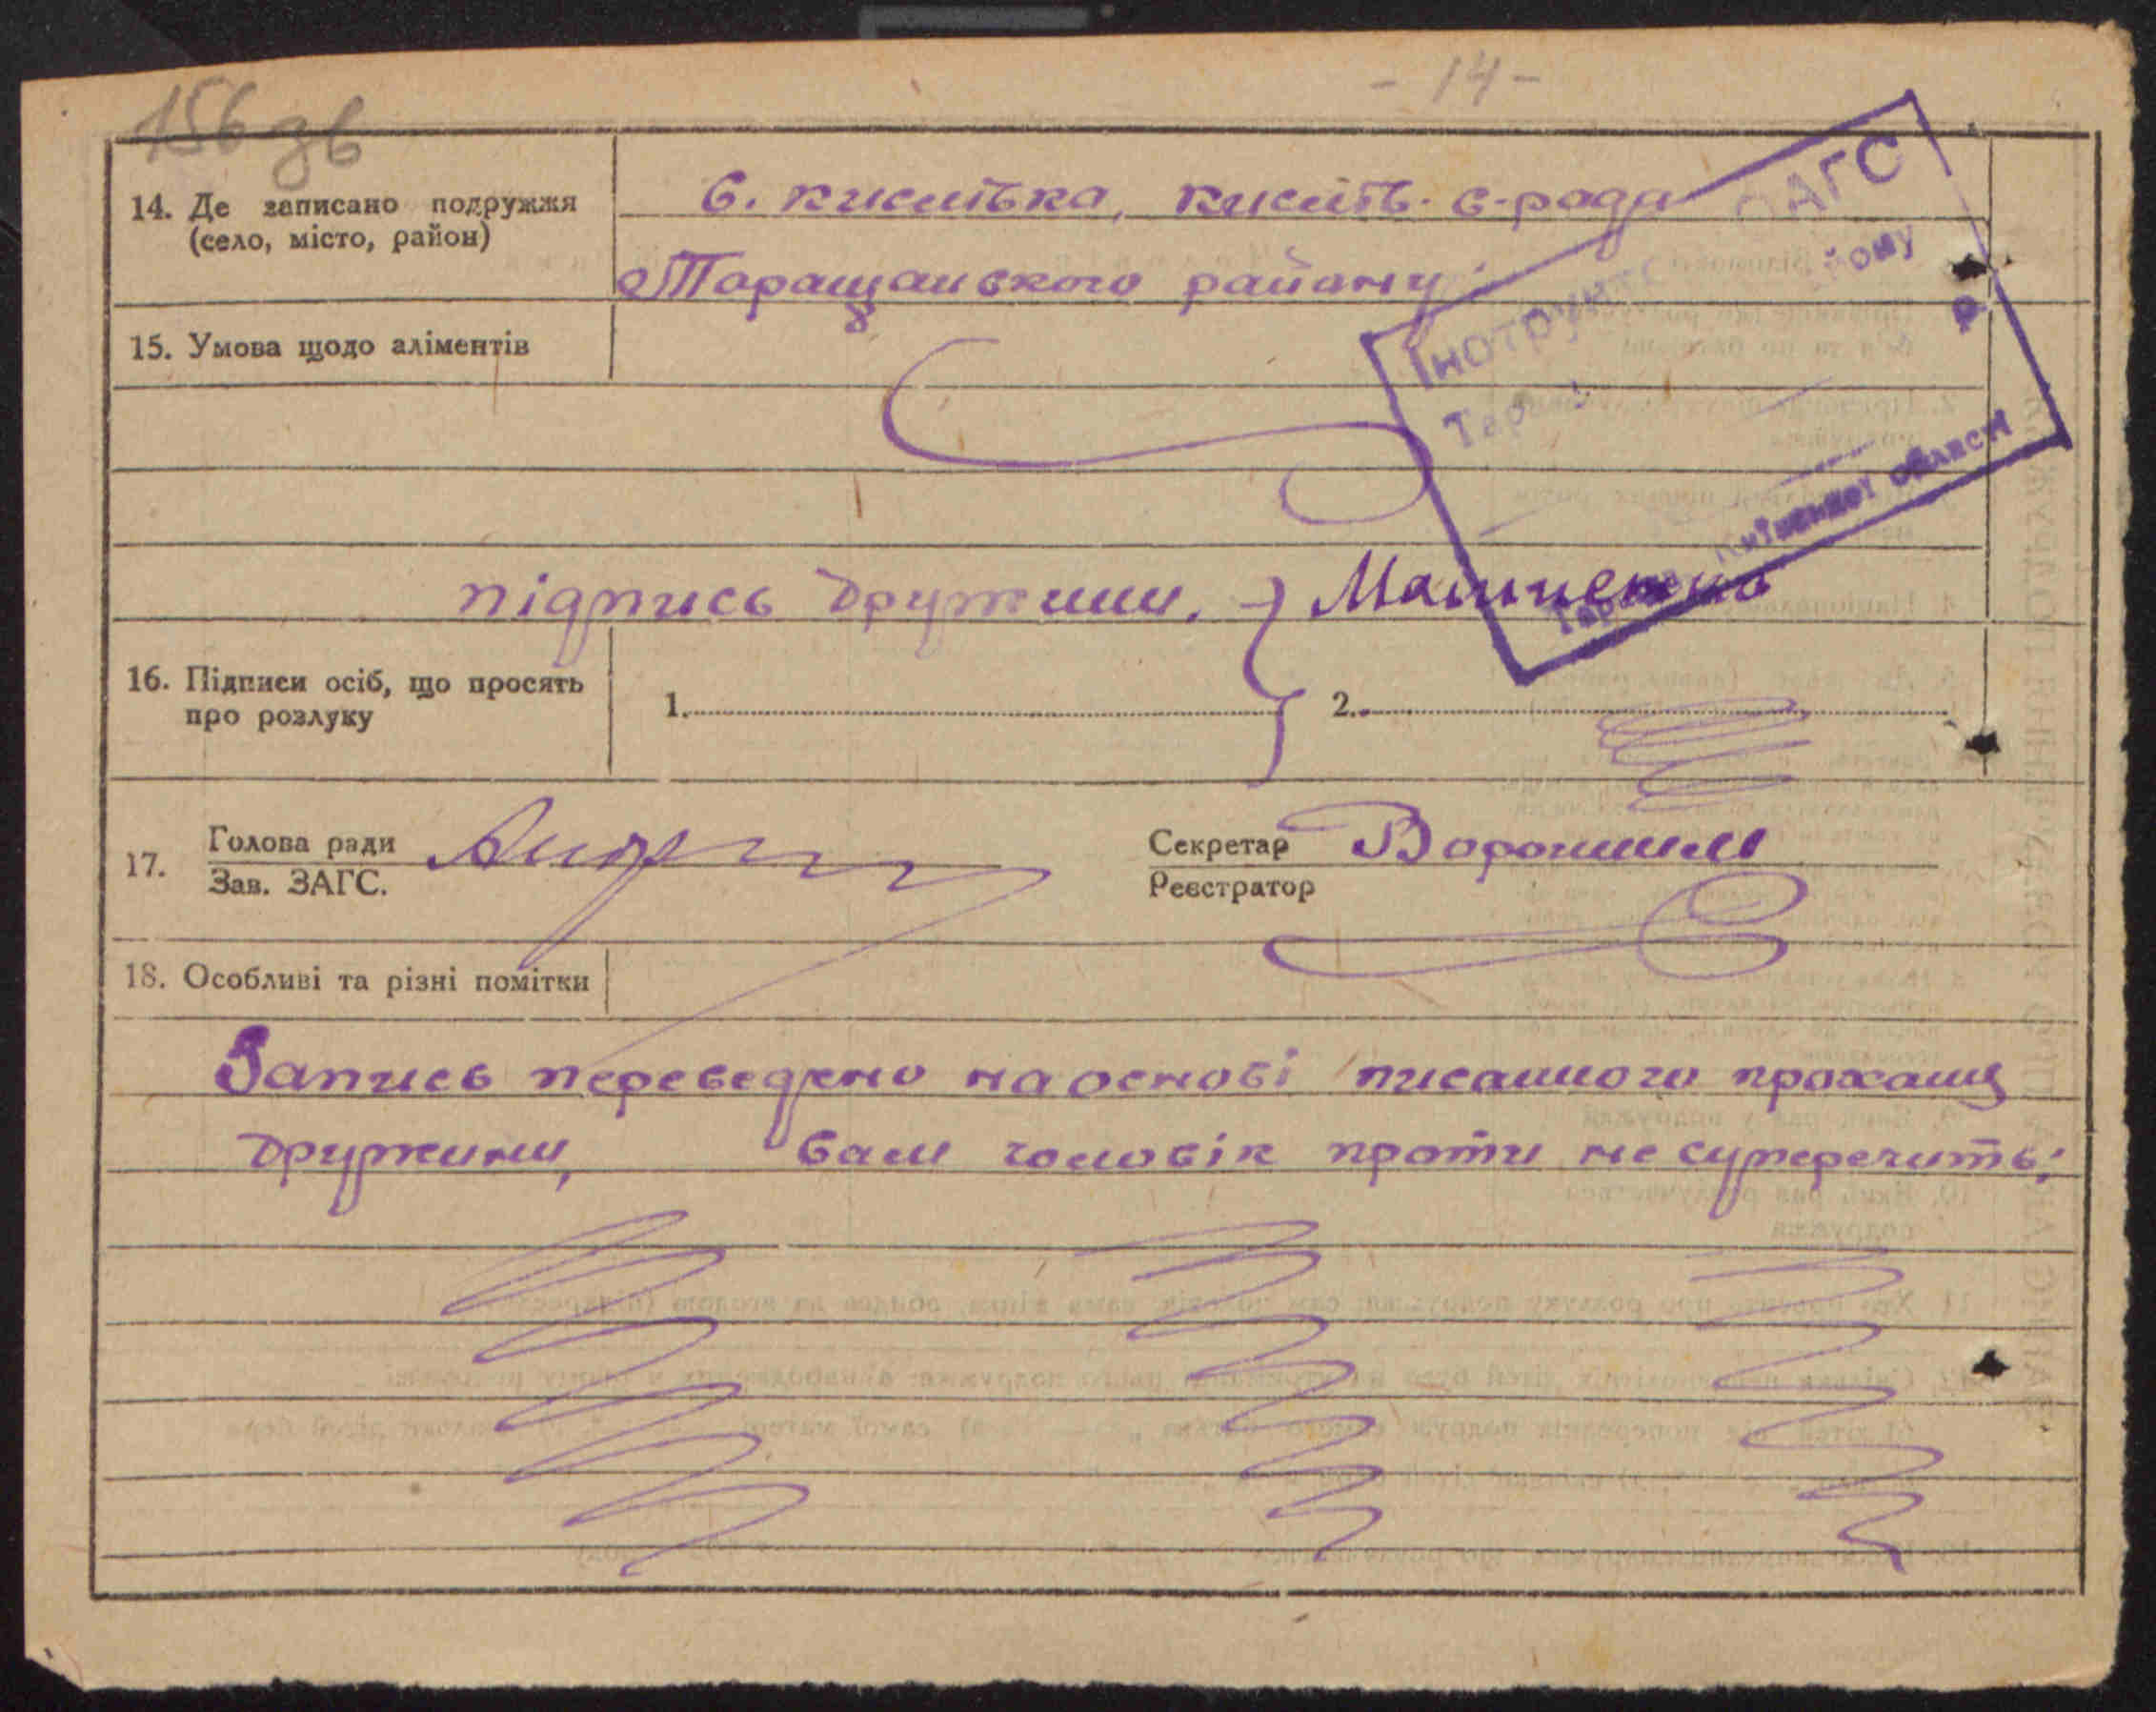 156 зв
- 14 -
14. Де записано подружжя
(село, місто, район)
с. Кислівка, Кислів. с-рада
Таращанського району
ЗАГС
Київської області
15. Умова щодо аліментів
підпись дружини.
16. Підписи осіб, що просять
про розлуку
1.
2.
17. Голова ради
Зав. ЗАГС.
Секретар
Реєстратор
18. Особливі та різні помітки
Запись переведено на основі писанного прохання
дружини, сам чоловік проти не суперечить;